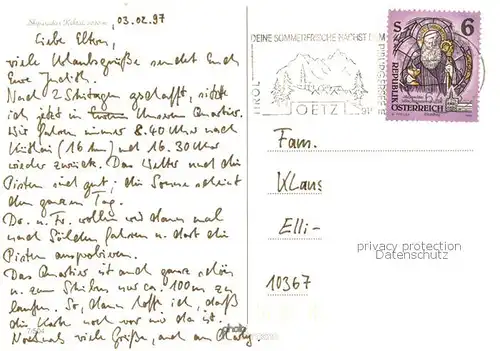 Skiparadies Kühtai 2020 m
03.02.97
Liebe Eltern,
viele Urlaubsgrüße sendet Euch
Eure Judith.
Nach 2 Skitagen geschafft, sitze
ich jetzt in unseren Quartier.
Wir fahren immer 8.40 Uhr nach
Kühtai (16 km) und 16.30 Uhr
wieder zurück. Das Wetter und die
Pisten sind gut, die Sonne scheint
den ganzen Tag.
Do. u. Fr. wollen wir dann mal
nach Sölden fahren u. dort die
Pisten ausprobieren.
Das Quartier ist auch ganz schön
u. zum Skibus nur ca. 100m zu
laufen. So, dann hoffe ich, daß
die Karte noch vor mir da ist.
Nochmals viele Grüße, auch an
DEINE SOMMERFRISCHE NÄCHST DEM
TIROL
OETZ
S 6
REPUBLIK
ÖSTERREICH
Fam.
Klaus
Elli-
10367
privacy protection
Datenschutz
photo